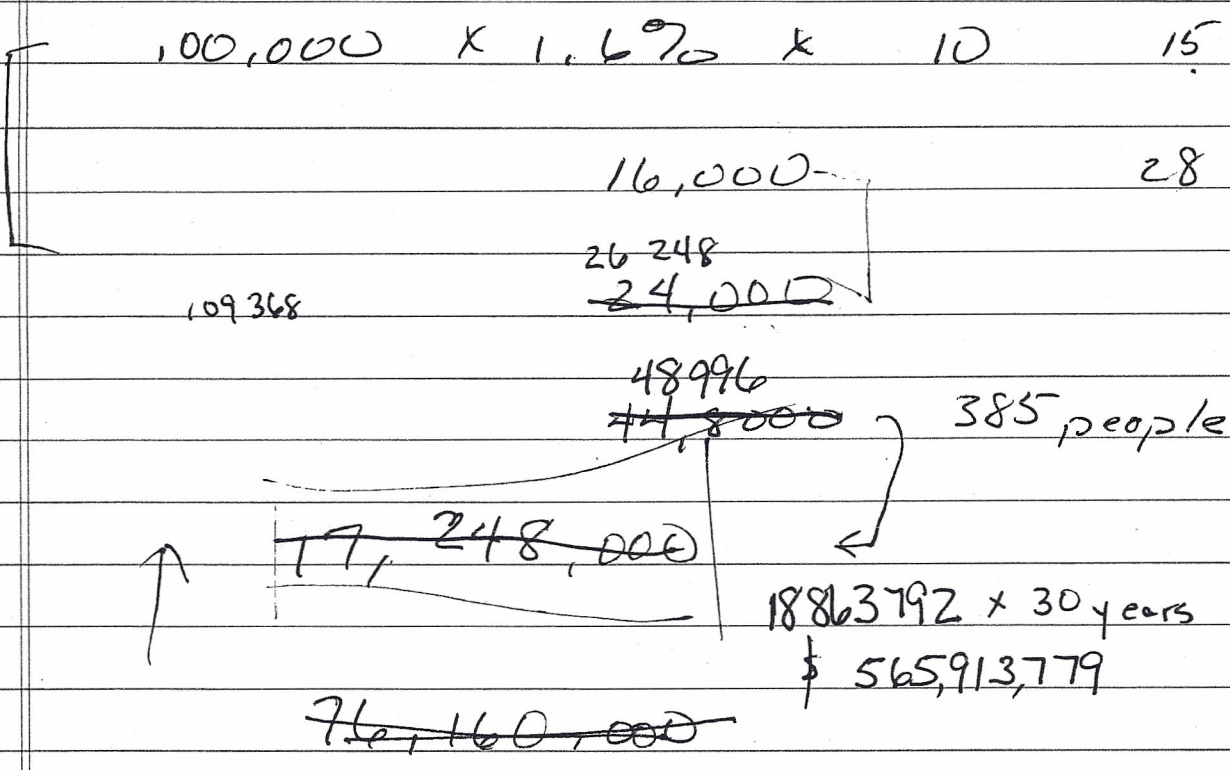 100,000 x 1.6% x 10 15
16,000 28
26 248
109368 24,000
48996
44,8000 385 people
17,248,000
18863792 x 30 years
$ 565,913,779
76,160,000